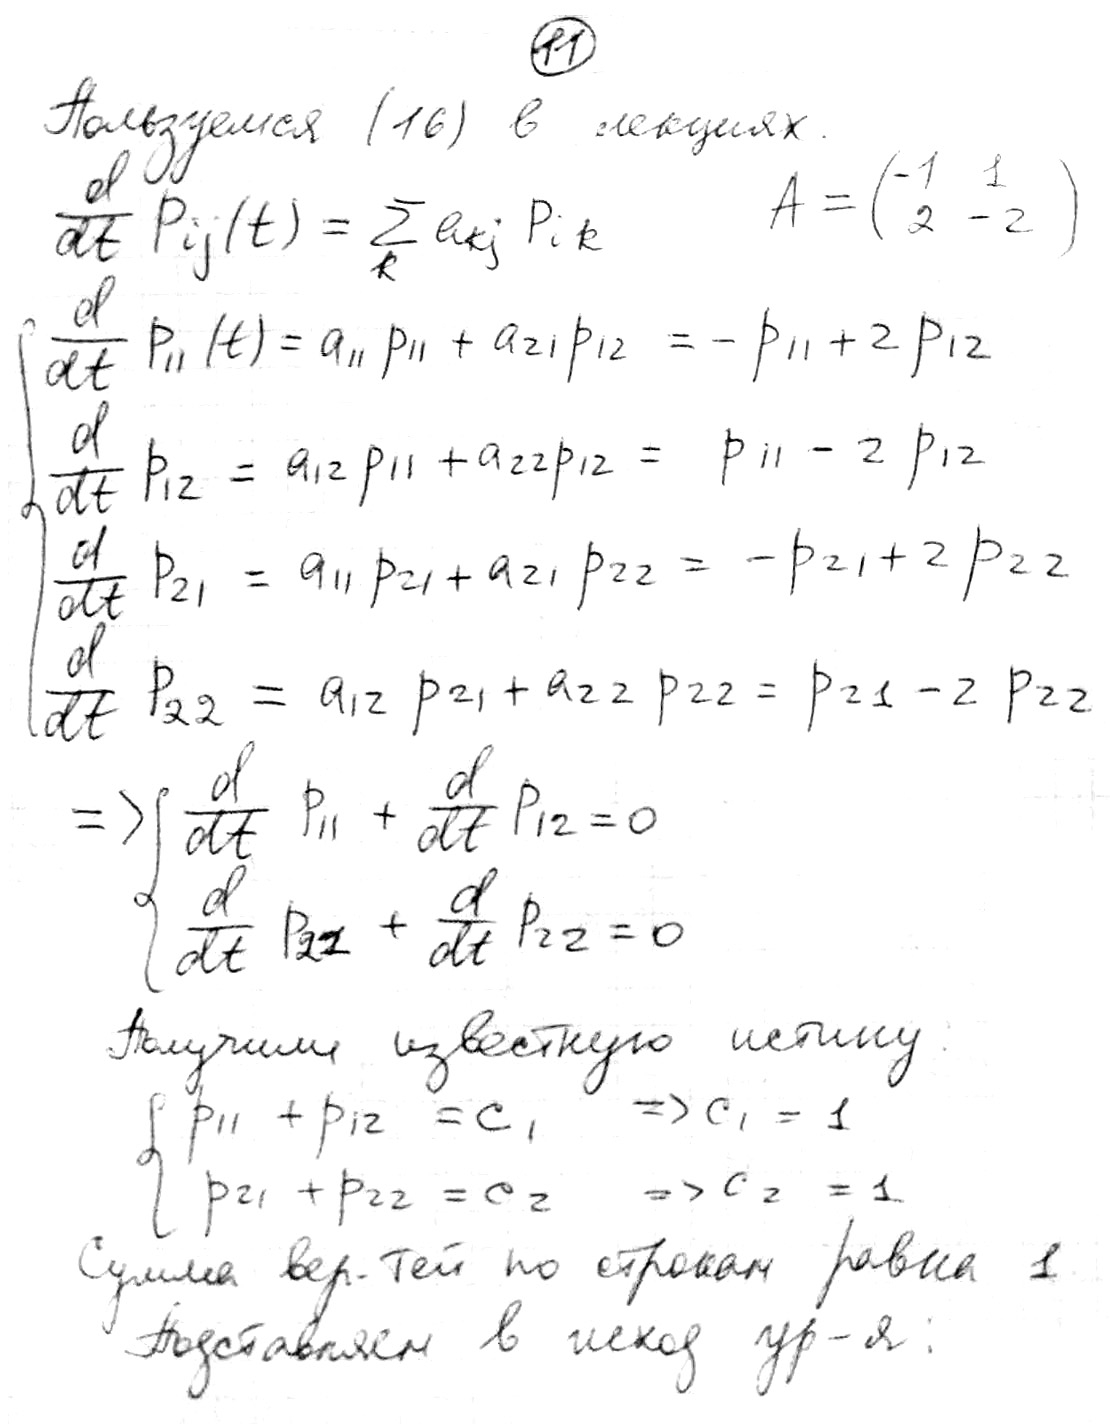 11
Пользуемся (16) в лекциях.
d/dt Pij(t) = Σ_k akj Pik    A = (-1 1; 2 -2)
d/dt P11(t) = a11 p11 + a21 p12 = -p11 + 2 p12
d/dt p12 = a12 p11 + a22 p12 = p11 - 2 p12
d/dt P21 = a11 p21 + a21 p22 = -p21 + 2 p22
d/dt P22 = a12 p21 + a22 p22 = p21 - 2 p22
=> { d/dt P11 + d/dt P12 = 0
d/dt P21 + d/dt P22 = 0
Получили известную истину:
p11 + p12 = c1 => c1 = 1
p21 + p22 = c2 => c2 = 1
Сумма вер-тей по строкам равна 1
Подставляем в исход ур-я: